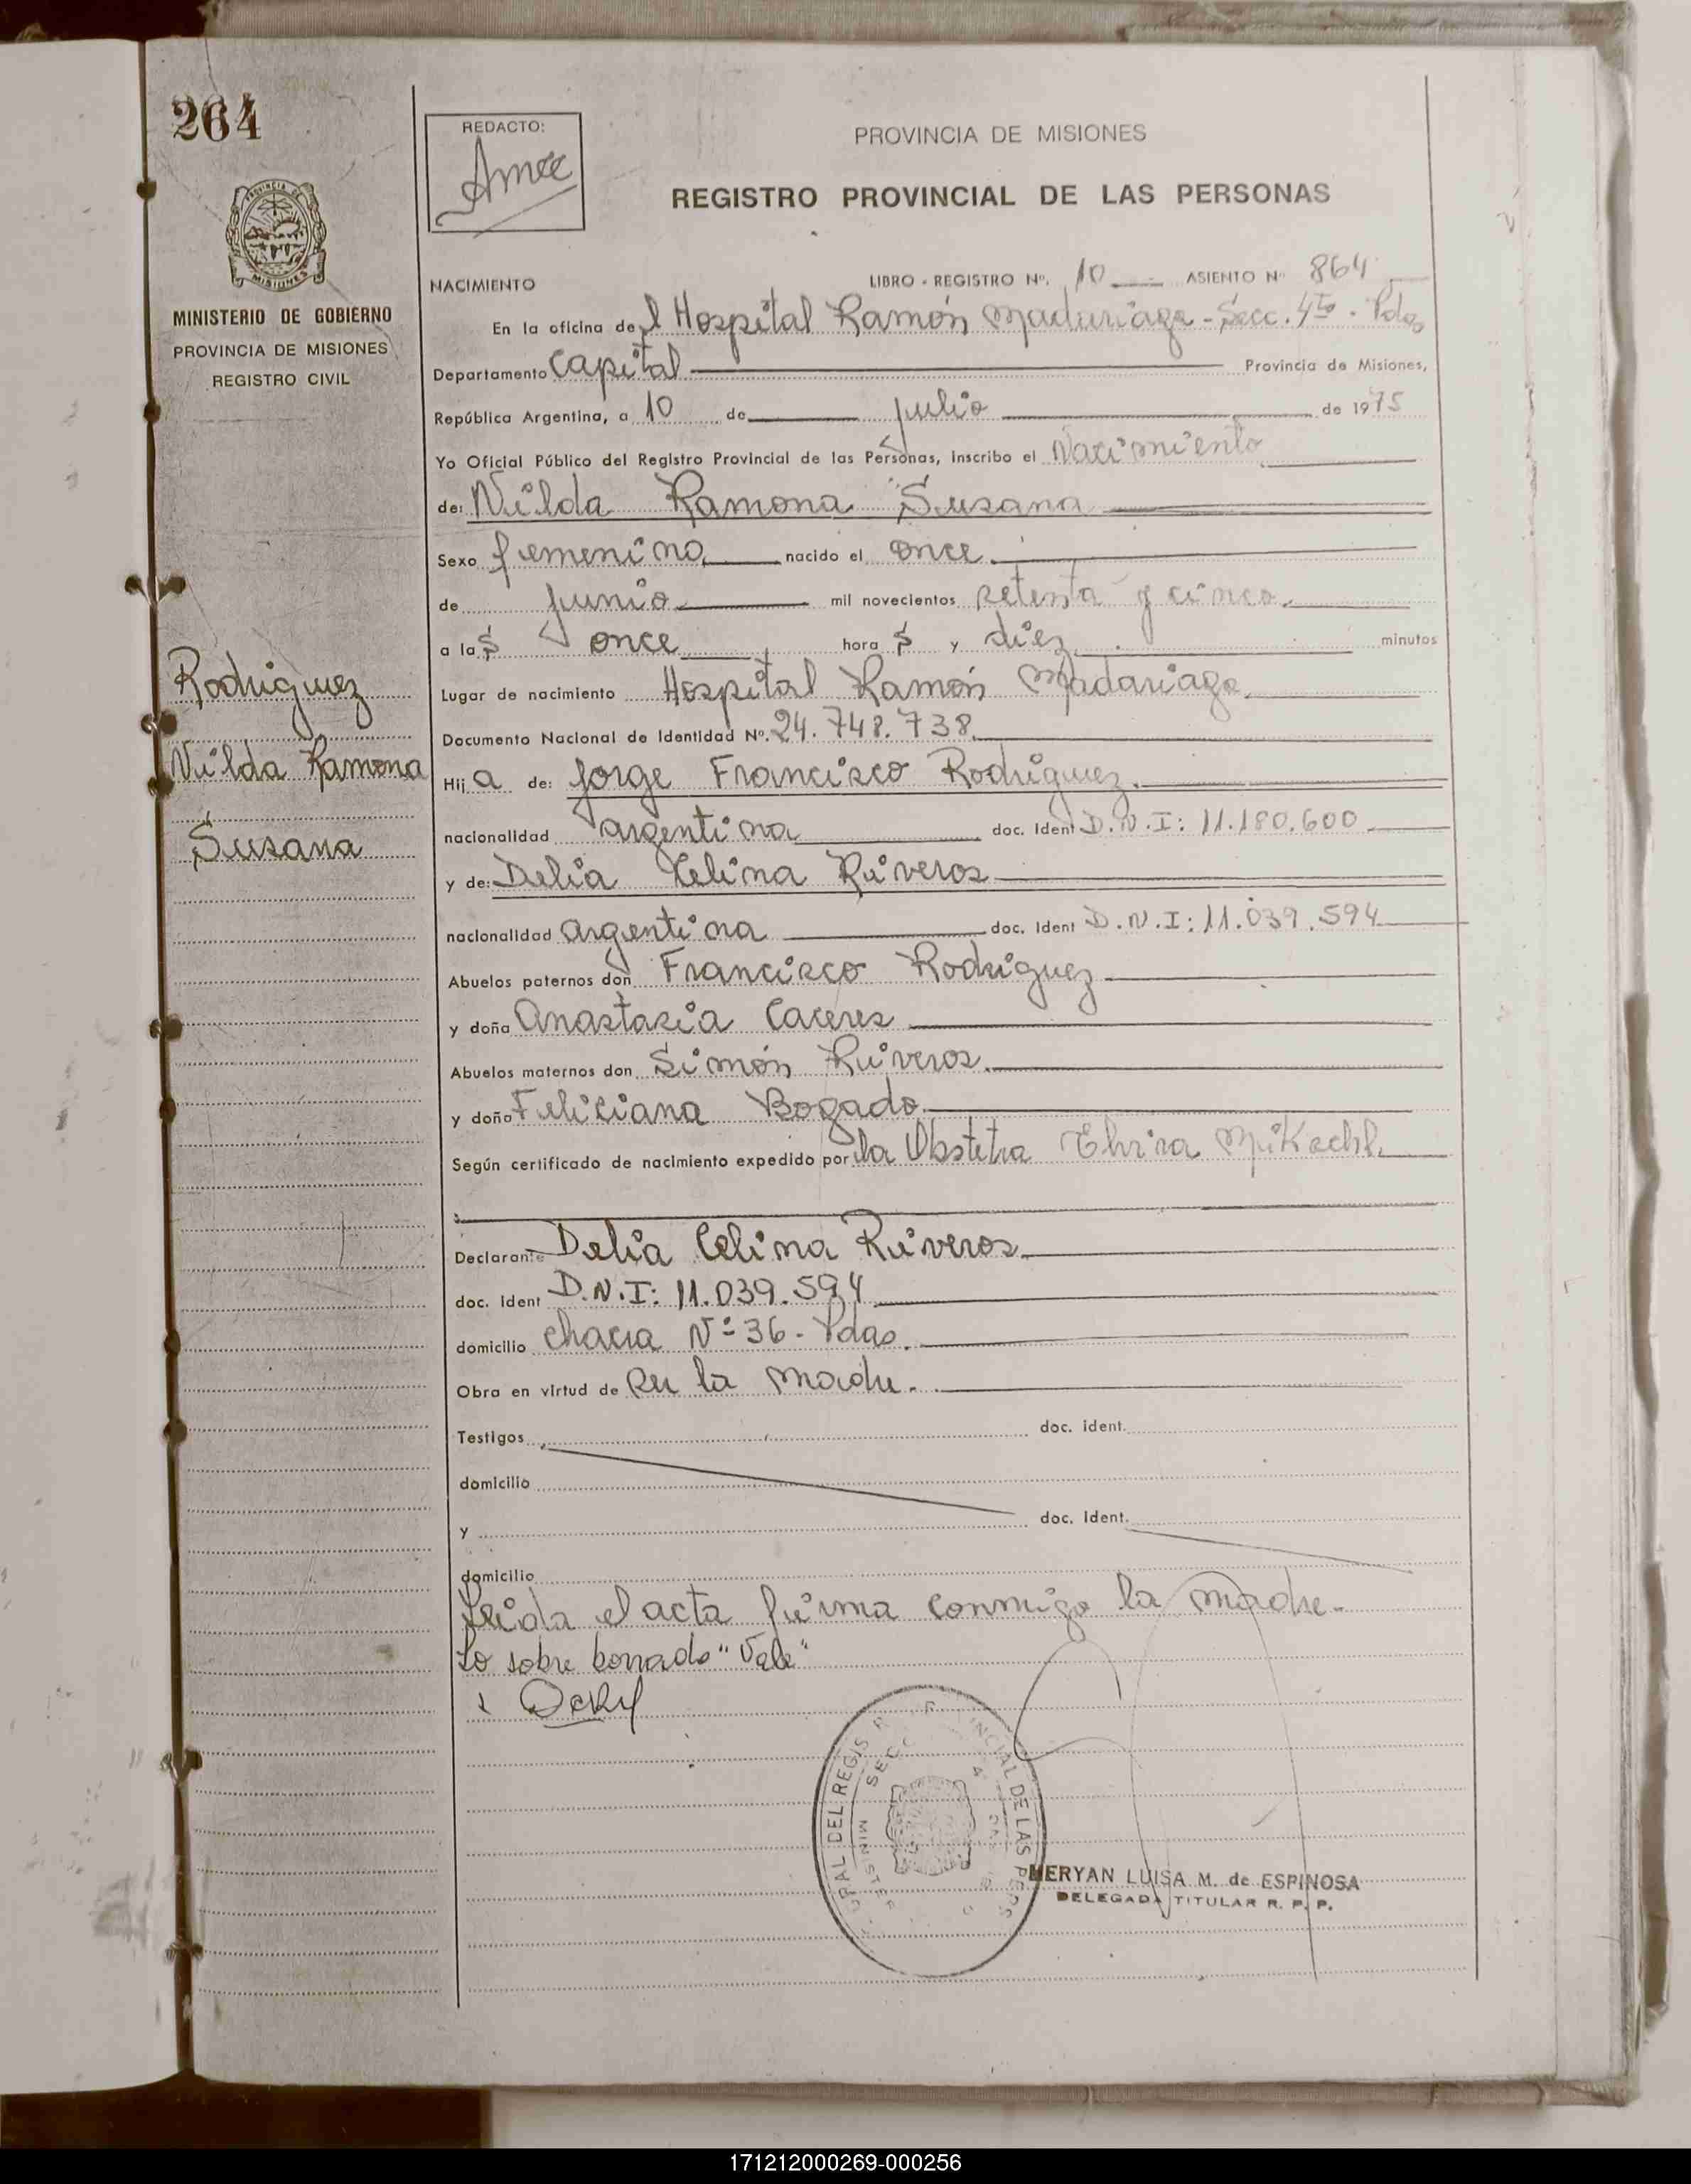 264
MINISTERIO DE GOBIERNO
PROVINCIA DE MISIONES
REGISTRO CIVIL
REDACTO:
PROVINCIA DE MISIONES
REGISTRO PROVINCIAL DE LAS PERSONAS
NACIMIENTO LIBRO - REGISTRO Nº. 10 ASIENTO Nº 864
En la oficina del Hospital Ramón Madariaga - Secc. 4ta - Pdas
Departamento Capital Provincia de Misiones,
República Argentina, a 10 de julio de 1975
Yo Oficial Público del Registro Provincial de las Personas, inscribo el Nacimiento
de: Nilda Ramona Susana
Sexo femenino nacido el once
de junio mil novecientos setenta y cinco.
a las once horas y diez minutos
Lugar de nacimiento Hospital Ramón Madariaga.
Documento Nacional de Identidad Nº. 24.748.738
Hija de: Jorge Francisco Rodriguez.
nacionalidad argentina doc. Ident D.N.I: 11.180.600
y de: Delia Celina Riveros
nacionalidad argentina doc. Ident D.N.I: 11.039.594
Abuelos paternos don Francisco Rodriguez
y doña Anastasia Caceres
Abuelos maternos don Simón Riveros.
y doña Feliciana Bogado.
Según certificado de nacimiento expedido por la Obstetra
Declarante Delia Celina Riveros
doc. Ident D.N.I: 11.039.594
domicilio chacra Nº 36 - Pdas.
Obra en virtud de ser la madre.
Testigos doc. ident.
domicilio
y doc. ident.
domicilio
Leida el acta firma conmigo la madre.
Lo sobre borrado "Vale"
Rodriguez
Nilda Ramona
Susana
MERYAN LUISA M. de ESPINOSA
DELEGADA TITULAR R. P. P.
171212000269-000256